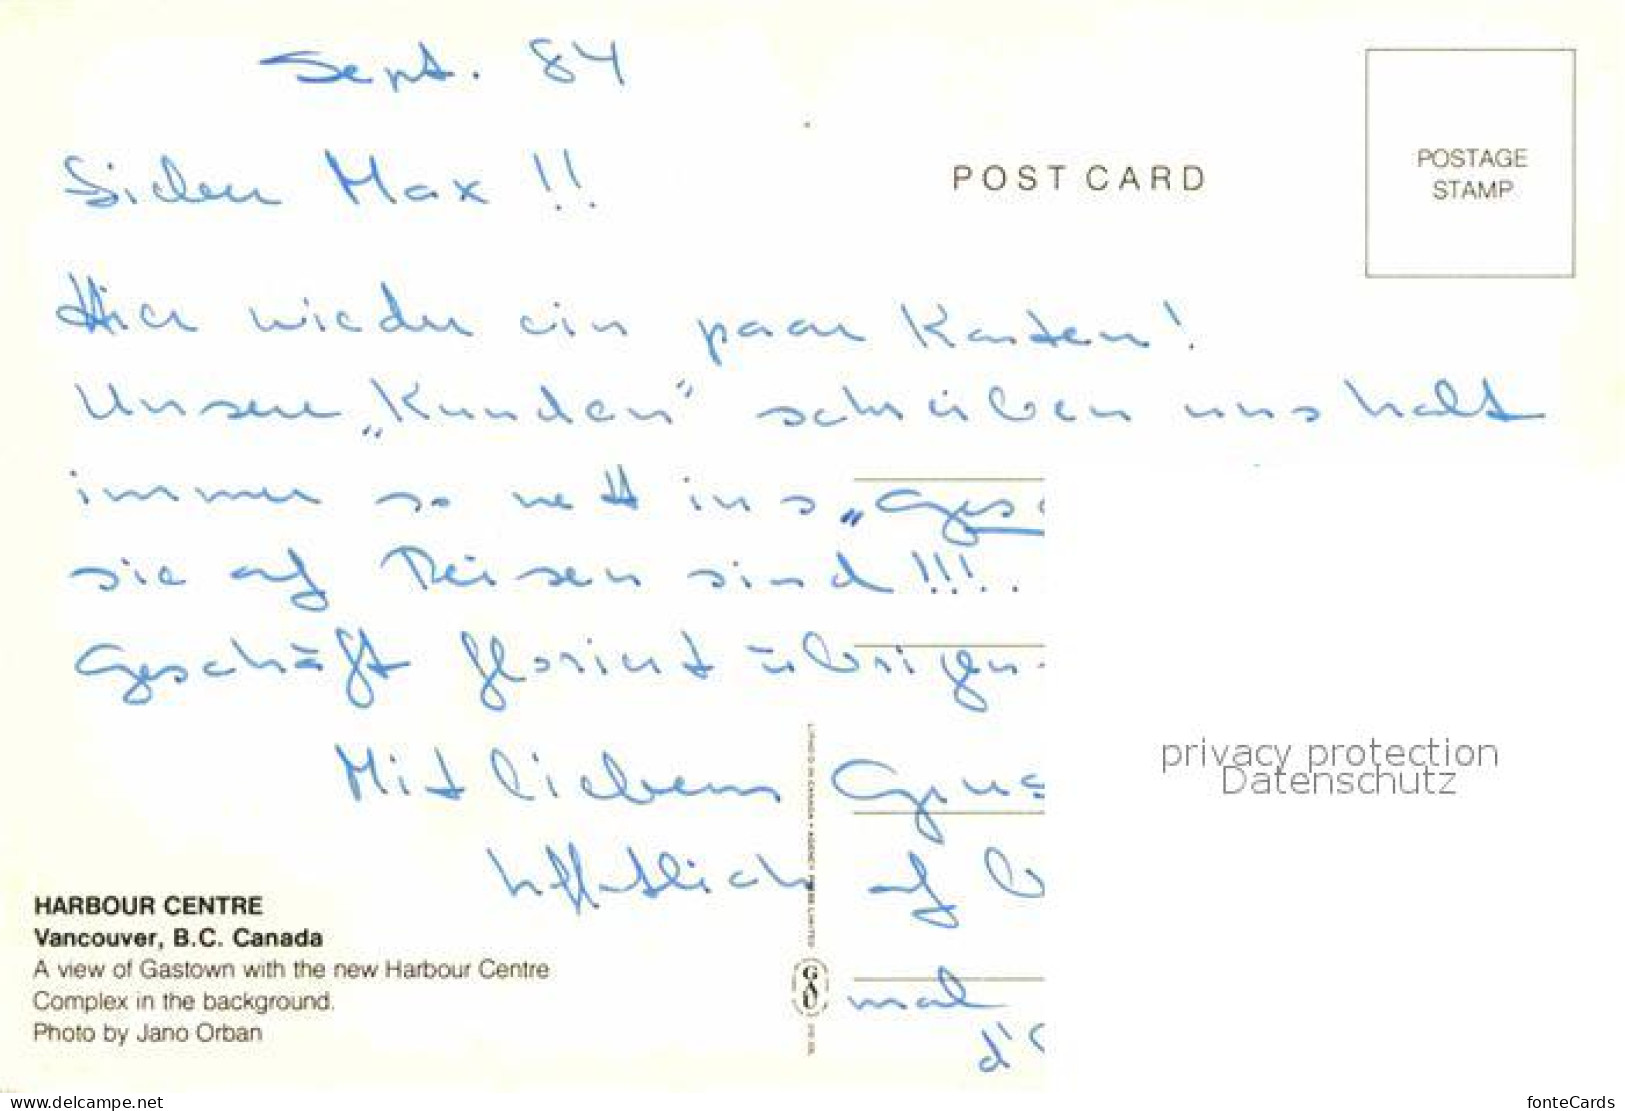 Sept. 84
Lieber Max !!
POST CARD
POSTAGE
STAMP
Hier wieder ein paar Karten!
Unsere „Kunden" schreiben uns halt
immer so nett ins „Ges
sie auf Reisen sind !!!.
Geschäft floriert übrigens
Mit liebem Grus
hoffentlich auf b
mal
d'
HARBOUR CENTRE
Vancouver, B.C. Canada
A view of Gastown with the new Harbour Centre
Complex in the background.
Photo by Jano Orban
LITHO'D IN CANADA • AGENCY PRESS LIMITED
privacy protection
Datenschutz
www.delcampe.net
fonteCards